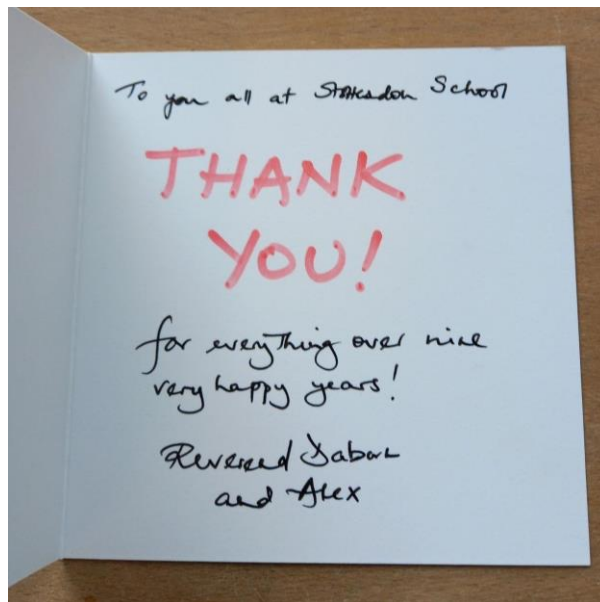 To you all at Stottesdon School
THANK
YOU!
for everything over nine
very happy years!
Reverend Daborn
and Alex